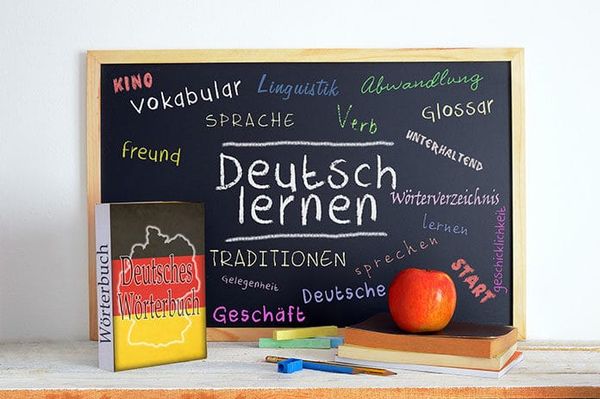 KINO
Vokabular
Linguistik
Abwandlung
Glossar
SPRACHE
Verb
UNTERHALTEND
freund
Deutsch
lernen
Wörterverzeichnis
lernen
geschicklichkeit
TRADITIONEN
sprechen
START
Gelegenheit
Deutsche
Geschäft
Wörterbuch
Deutsches
Wörterbuch